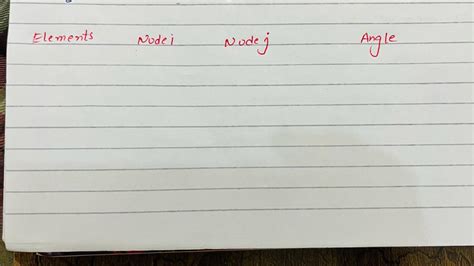 Elements Node i Node j Angle